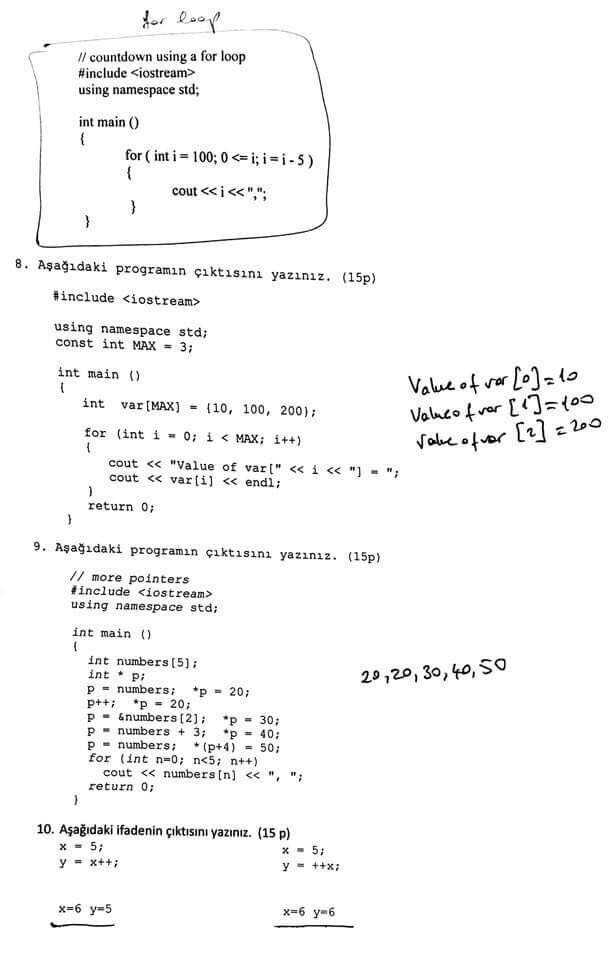 for loop
// countdown using a for loop
#include <iostream>
using namespace std;
int main ()
{
for ( int i = 100; 0 <= i; i = i - 5 )
{
cout << i << ",";
}
}
8. Aşağıdaki programın çıktısını yazınız. (15p)
#include <iostream>
using namespace std;
const int MAX = 3;
int main ()
{
int var[MAX] = {10, 100, 200};
for (int i = 0; i < MAX; i++)
{
cout << "Value of var[" << i << "] = ";
cout << var[i] << endl;
}
return 0;
}
Value of var [0]=10
Value of var [1]=100
Value of var [2] =200
9. Aşağıdaki programın çıktısını yazınız. (15p)
// more pointers
#include <iostream>
using namespace std;
int main ()
{
int numbers[5];
int * p;
p = numbers; *p = 20;
p++; *p = 20;
p = &numbers[2]; *p = 30;
p = numbers + 3; *p = 40;
p = numbers; *(p+4) = 50;
for (int n=0; n<5; n++)
cout << numbers[n] << ", ";
return 0;
}
20,20,30,40,50
10. Aşağıdaki ifadenin çıktısını yazınız. (15 p)
x = 5; x = 5;
y = x++; y = ++x;
x=6 y=5 x=6 y=6